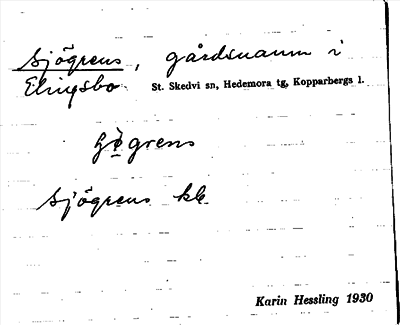 Sjögrens, gårdsnamn i
Elingsbo St. Skedvi sn, Hedemora tg, Kopparbergs l.
grens
Sjögrens kb
Karin Hessling 1930